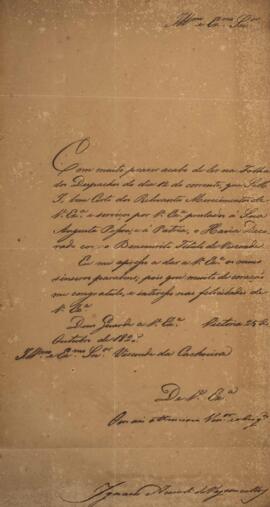 Illmo e Exmo Senr
Com muito prazer acabo de ler na Folha
dos Despachos do dia 12 do corrente, que S. M.
I. bem Certo dos Relevantes Merecimentos de
V. Exa e serviços por V. Exa prestados á Sua
Augusta Pessoa, e á Patria, o Havia Deco-
rado com o Benemerito Titulo de Visconde.
Eu me apresso a dar a V. Exa os meus
sinceros parabens, pois que muito de coração
me congratulo, e interesso nas felicidades de
V. Exa
Deus Guarde a V. Exa Victoria 25 de
Outubro de 182
Illmo e Exmo Senr Visconde da Cachoeira
De V. Exa
Ignacio Accioli de Vasconcellos